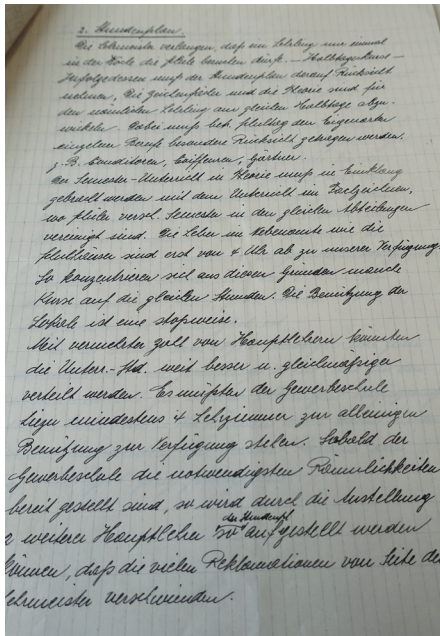 2. Stundenplan.
Die Lehrmeister verlangen, daß ein Lehrling nur einmal
in der Woche die Schule besuchen darf. — Halbtageskurse —
Infolgedessen muß der Stundenplan darauf Rücksicht
nehmen. Die Zeichenfächer und die Theorie sind für
den nämlichen Lehrling am gleichen Halbtage abzu-
wickeln. Dabei muß betr. Schultag den Eigenarten
einzelner Berufe besondere Rücksicht getragen werden.
z. B. Conditoren, Coiffeuren, Gärtner.
Der Semester-Unterricht in Theorie muß in Einklang
gebracht werden mit dem Unterricht im Fachzeichnen,
wo Schüler versch. Semester in den gleichen Abteilungen
vereinigt sind. Die Lehrer im Nebenamte wie die
Schulhäuser sind erst von 4 Uhr ab zu unserer Verfügung.
So konzentrieren sich aus diesen Gründen manche
Kurse auf die gleichen Stunden. Die Benützung der
Lokale ist eine stossweise.
Mit vermehrter Zahl von Hauptlehrern könnten
die Unterr.-Std. weit besser u. gleichmäßiger
verteilt werden. Es müßten der Gewerbeschule
hiezu mindestens 4 Lehrzimmer zur alleinigen
Benützung zur Verfügung stehen. Sobald der
Gewerbeschule die notwendigsten Räumlichkeiten
bereit gestellt sind, so wird durch die Anstellung
2 weiterer Hauptlehrer der Stundenpl. so aufgestellt werden
können, daß die vielen Reklamationen von Seite der
Lehrmeister verschwinden.